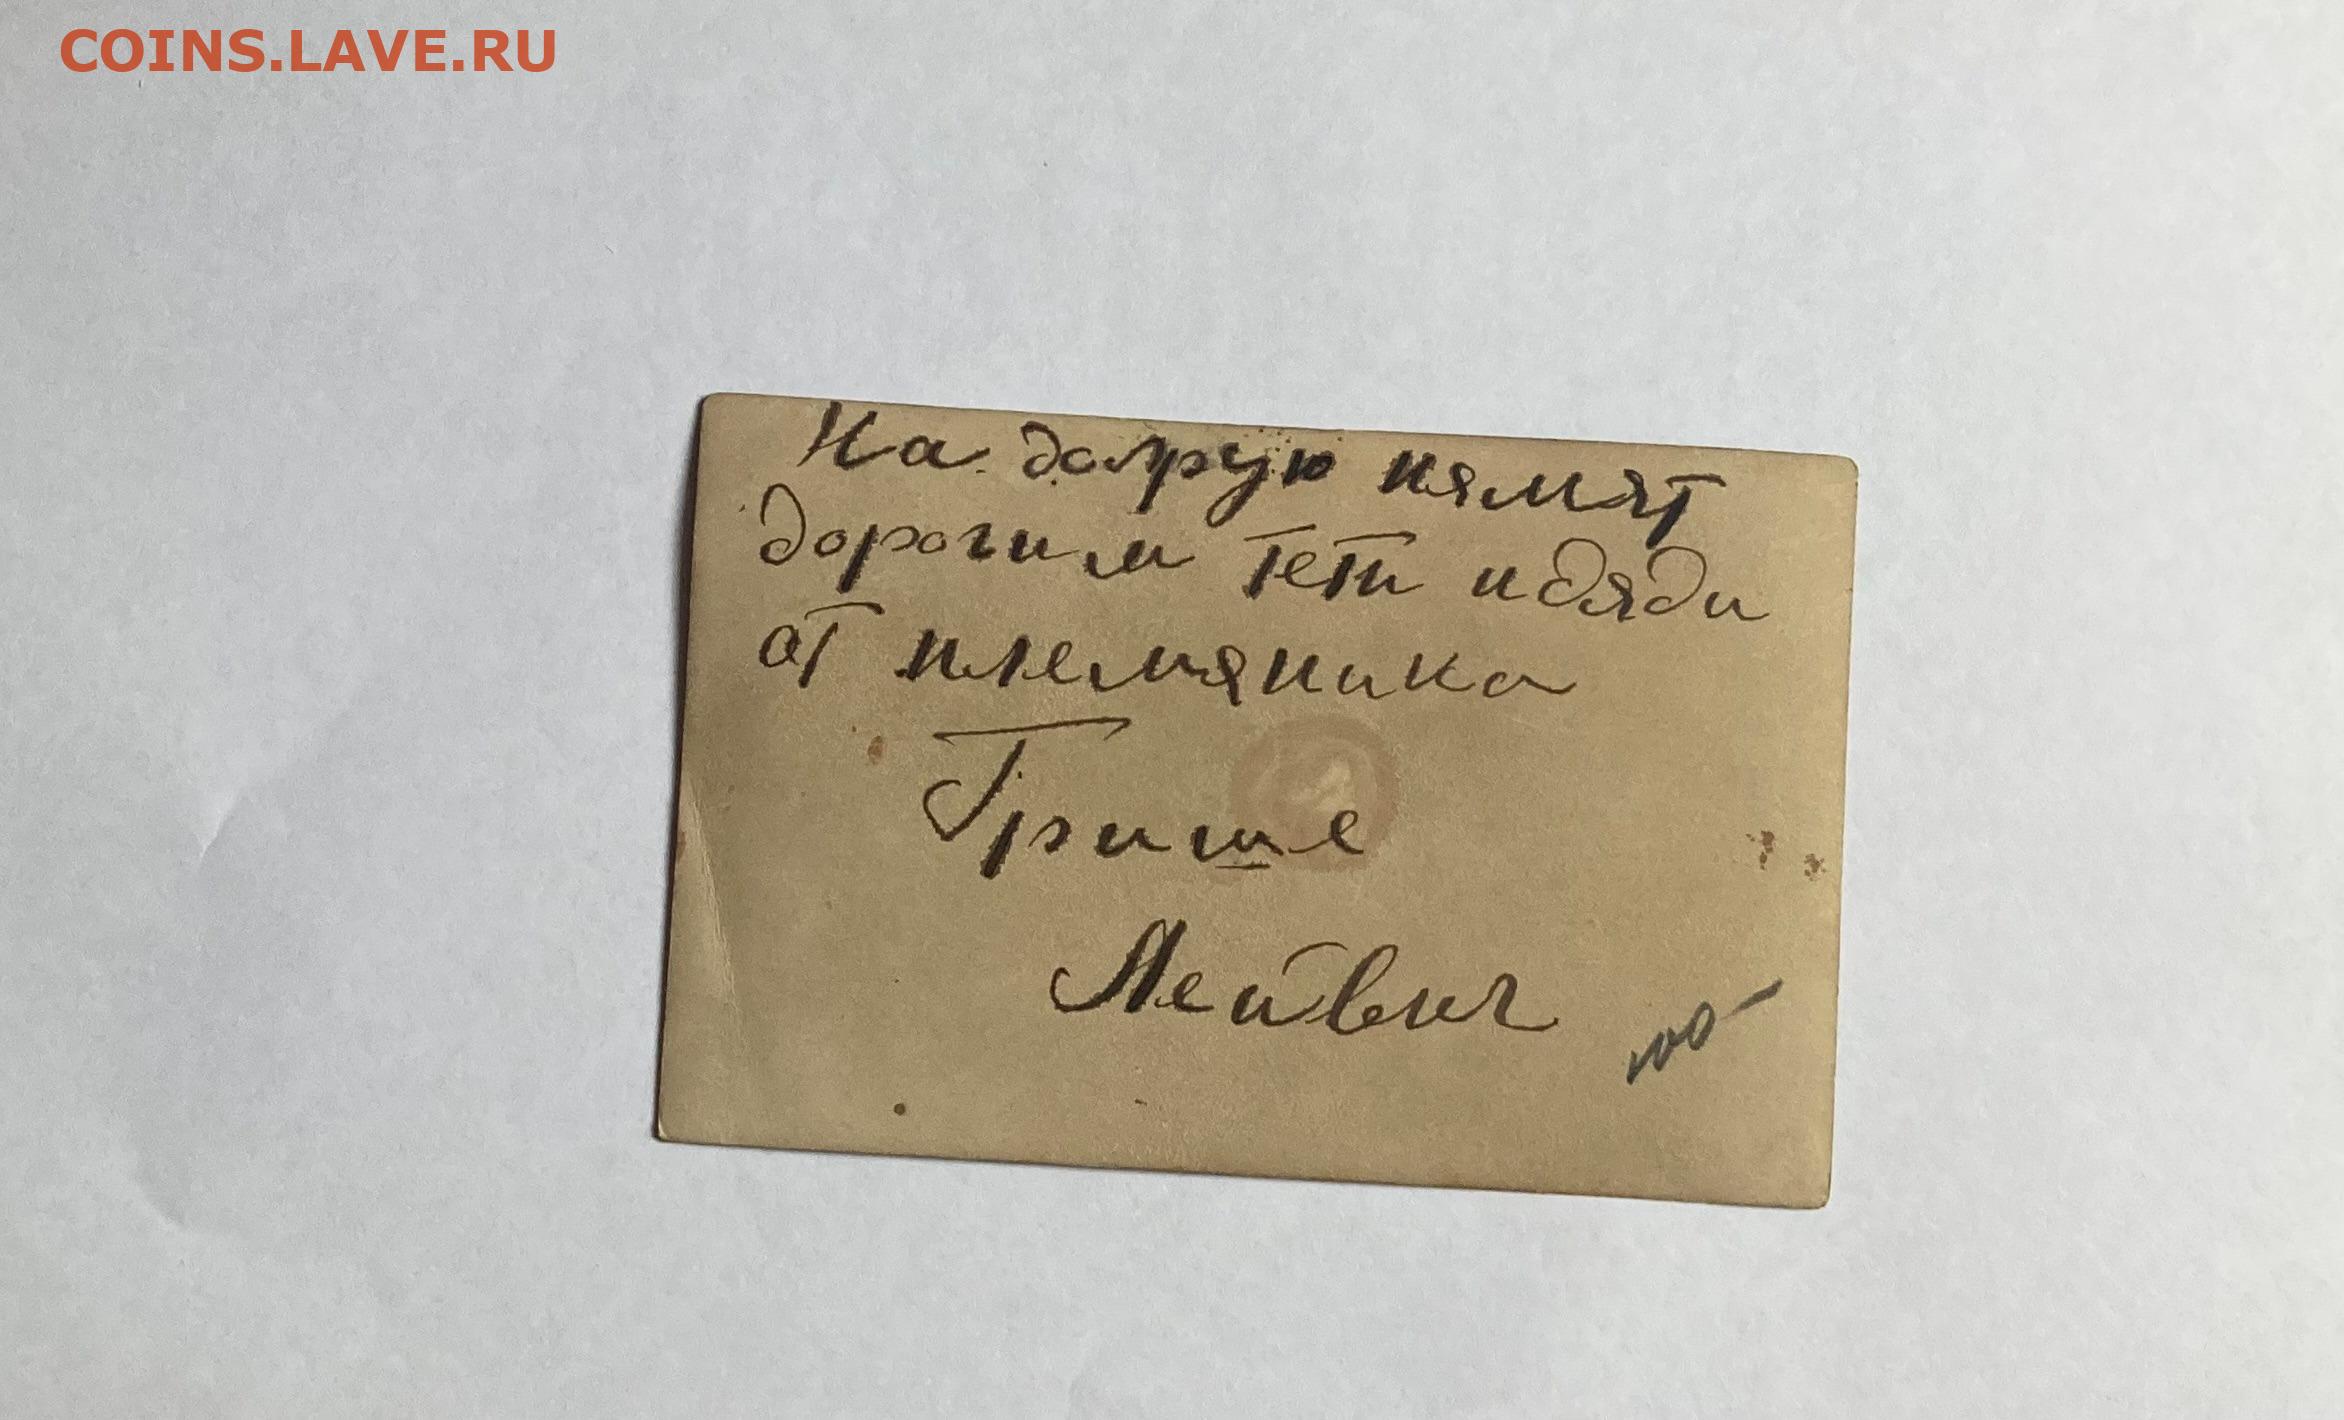 COINS.LAVE.RU
На долрую пямят
дорогим тети и дяди
от племяника
Грише
Лейвиг
100-